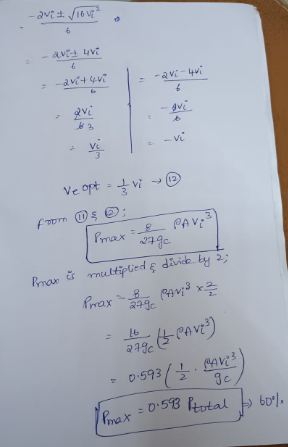 = -2vi ± √16vi² / 6
= -2vi ± 4vi / 6
= -2vi + 4vi / 6 | = -2vi - 4vi / 6
= 2vi / 6 3 | = -6vi / 6
= vi / 3 | = -vi
Ve opt = 1/3 vi → ⑫
From ⑪ & ⑫ :
Pmax = 8/27gc ρAVi³
Pmax is multiplied & divide by 2;
Pmax = 8/27gc ρAVi³ × 2/2
= 16/27gc (1/2 ρAVi³)
= 0.593 (1/2 · ρAVi³/gc)
Pmax = 0.593 Ptotal ⇒ 60%